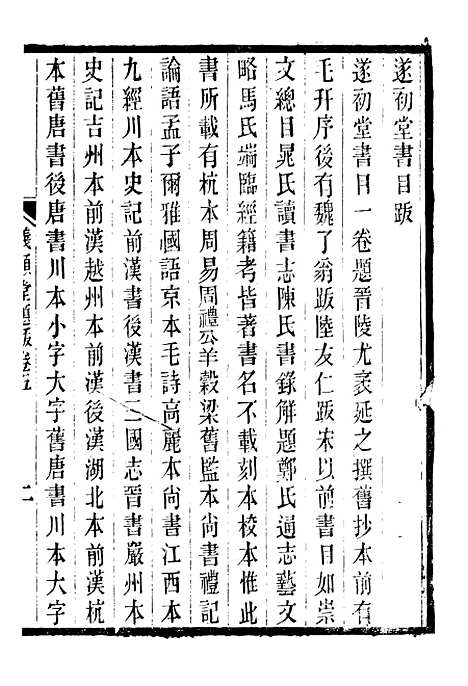 遂初堂書目跋
遂初堂書目一卷題晉陵尤袤延之撰舊抄本前有
毛幵序後有魏了翁跋陸友仁跋宋以前書目如崇
文總目晁氏讀書志陳氏書錄解題鄭氏通志藝文
略馬氏端臨經籍考皆著書名不載刻本校本惟此
書所載有杭本周易周禮公羊穀梁舊監本尚書禮記
論語孟子爾雅國語京本毛詩高麗本尚書江西本
九經川本史記前漢書後漢書三國志晉書嚴州本
史記吉州本前漢越州本前漢後漢湖北本前漢杭
本舊唐書後唐書川本小字大字舊唐書川本大字
儀顧堂題跋卷五
二